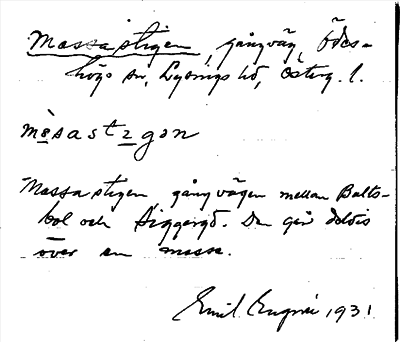 Mossastigen, gångväg, Ödes-
högs sn, Lysings hd, Österg. l.
mosastigon
Mossastigen, gångvägen mellan Balts-
bol och Siggergd. Den går delvis
över en mosse.
Emil 1931